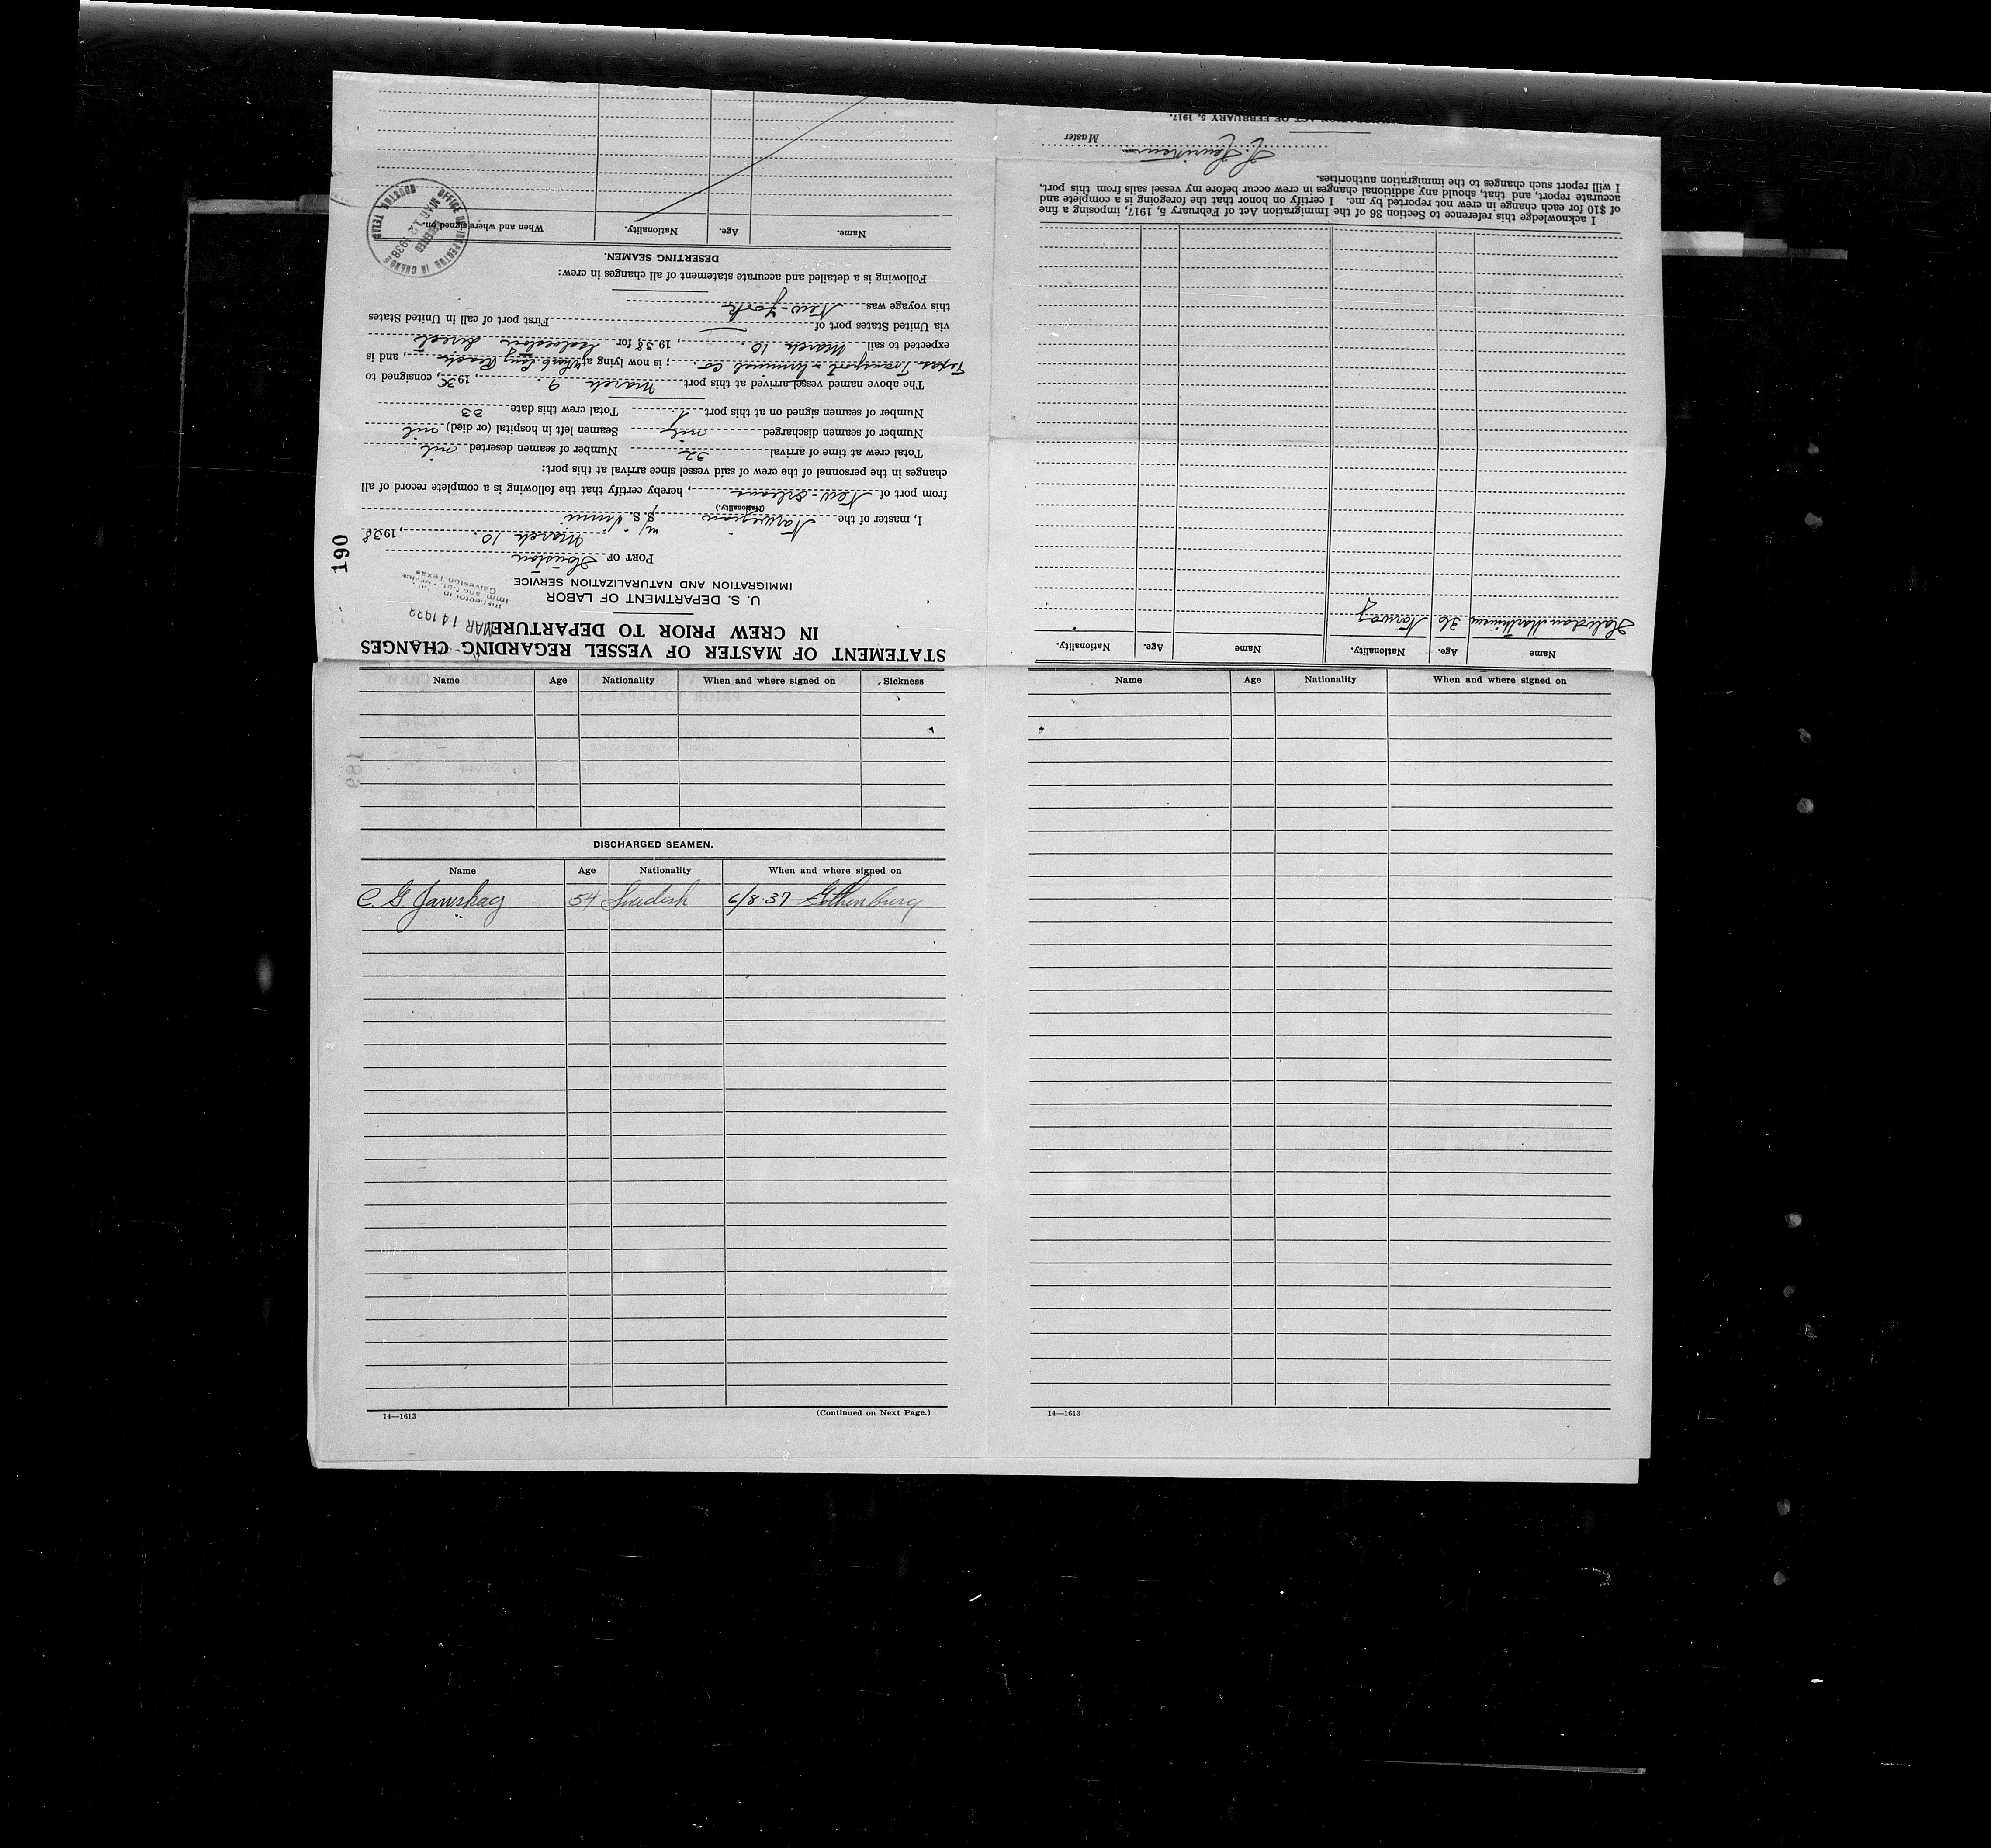 STATEMENT OF MASTER OF VESSEL REGARDING CHANGES
IN CREW PRIOR TO DEPARTURE
MAR 14
Inspector in
Galveston Texas
U. S. DEPARTMENT OF LABOR
IMMIGRATION AND NATURALIZATION SERVICE
190
PORT OF Houston
March 10, 1938
I, master of the Norwegian m/ S. S.
(Nationality.)
from port of New-Orleans, hereby certify that the following is a complete record of all
changes in the personnel of the crew of said vessel since arrival at this port:
Total crew at time of arrival 32 Number of seamen deserted nil
Number of seamen discharged nil Seamen left in hospital (or died) nil
Number of seamen signed on at this port 1 Total crew this date 33
The above named vessel arrived at this port March 9, 1938, consigned to
Texas Transport & Terminal Co. ; is now lying at Wharf Long Reach, and is
expected to sail March 10, 1938, for Galveston direct
via United States port of First port of call in United States
this voyage was New-York
Following is a detailed and accurate statement of all changes in crew:
DESERTING SEAMEN.
Name. Age. Nationality. When and where signed on.
OFFICE OF INSPECTOR IN CHARGE
MAR 12 1938
HOUSTON, TEXAS
Name Age. Nationality. Name Age. Nationality.
Halvdan 36 Norway
I acknowledge this reference to Section 36 of the Immigration Act of February 5, 1917, imposing a fine
of $10 for each change in crew not reported by me. I certify on honor that the foregoing is a complete and
accurate report, and that, should any additional changes in crew occur before my vessel sails from this port,
I will report such changes to the immigration authorities.
Master
ACT OF FEBRUARY 5, 1917.
Name Age Nationality When and where signed on Sickness
189
DISCHARGED SEAMEN.
Name Age Nationality When and where signed on
C. G. 54 Swedish 6/8-37 - Gothenburg
14—1613 (Continued on Next Page.)
Name Age Nationality When and where signed on
14—1613